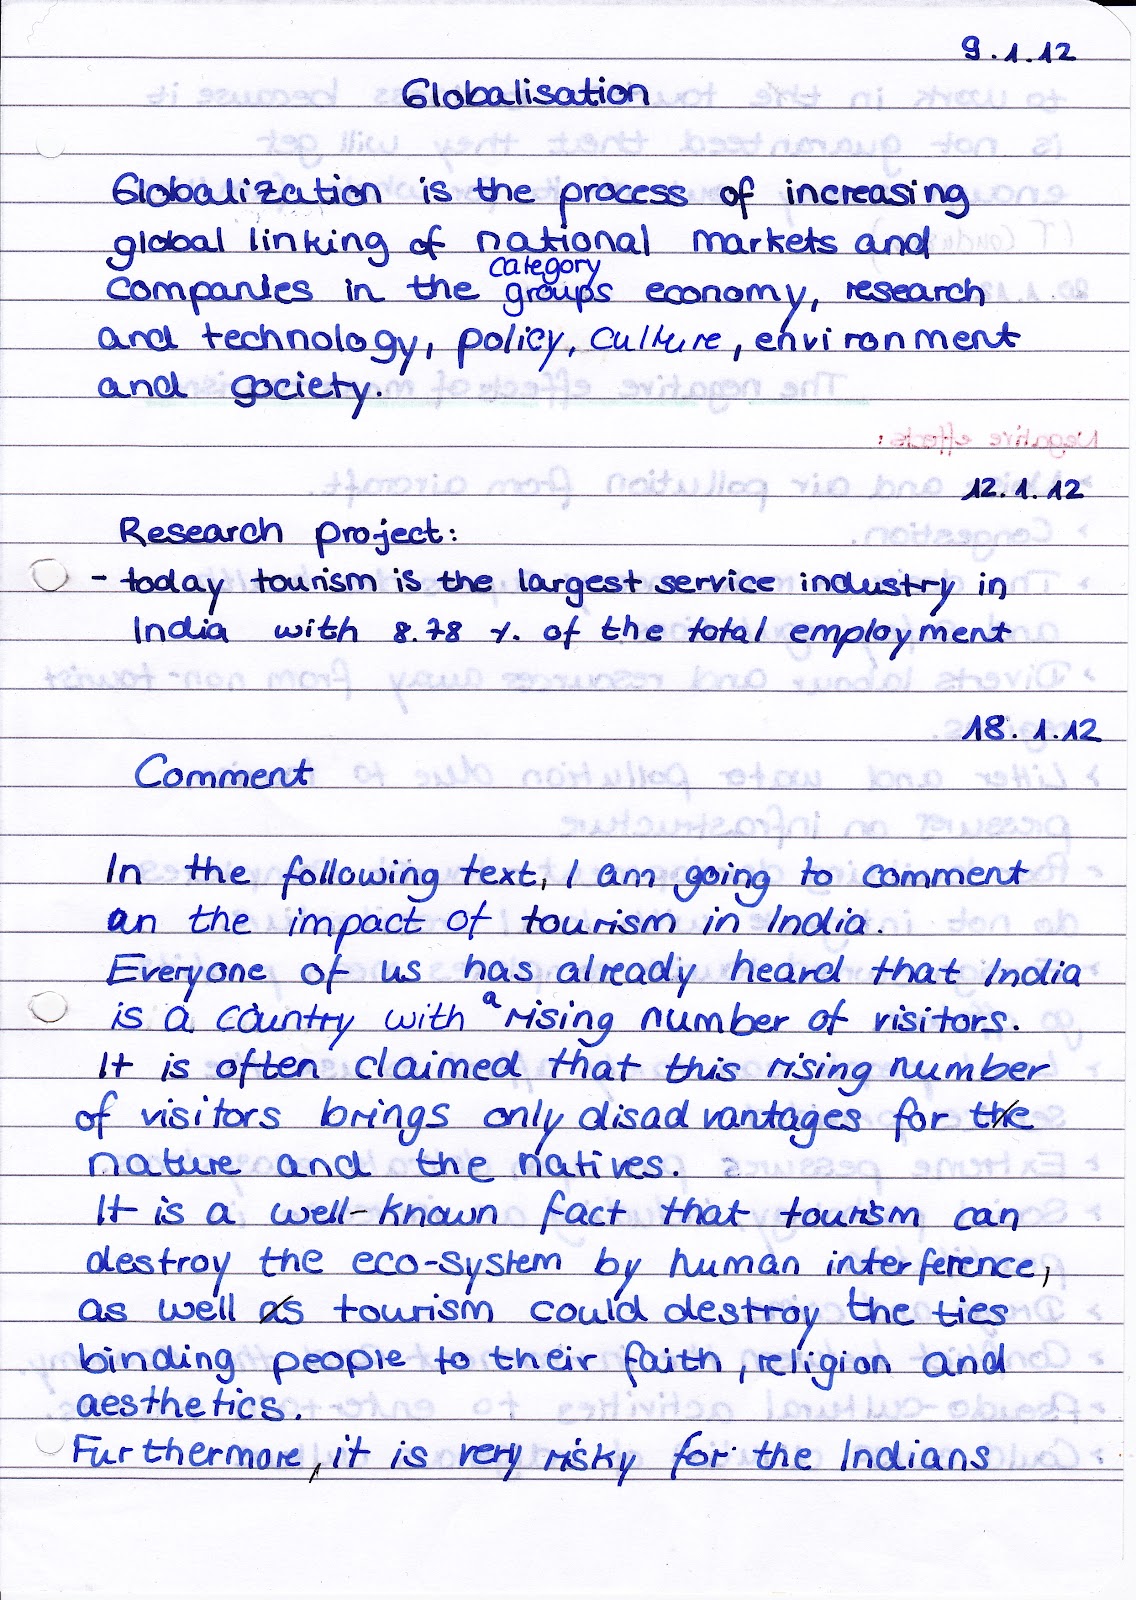 9.1.12
Globalisation
Globalization is the process of increasing
global linking of national markets and
category
companies in the groups economy, research
and technology, policy, culture, environment
and society.
Negative effects:
12.1.12
Research project:
- today tourism is the largest service industry in
India with 8.78 % of the total employment
18.1.12
Comment
In the following text, I am going to comment
on the impact of tourism in India.
Everyone of us has already heard that India
is a country with a rising number of visitors.
It is often claimed that this rising number
of visitors brings only disadvantages for the
nature and the natives.
It is a well-known fact that tourism can
destroy the eco-system by human interference,
as well as tourism could destroy the ties
binding people to their faith, religion and
aesthetics.
Furthermore, it is very risky for the Indians